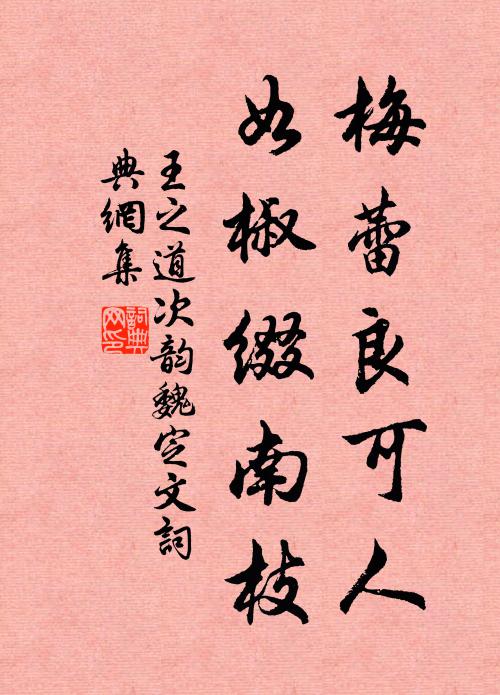 梅蕾良可人
如椒缀南枝
王之道次韵魏定文詞
典網集
詞典网印